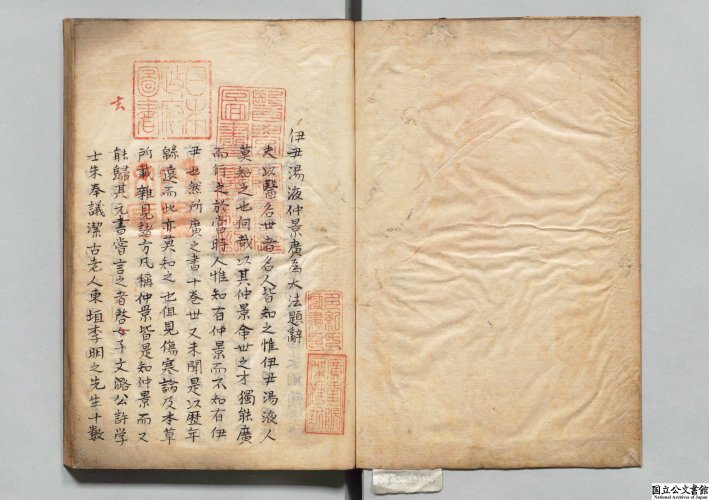 伊尹湯液仲景廣為大法題辭
夫以醫名世者名人皆知之惟伊尹湯液人
莫知之也何哉以其仲景命世之才獨能廣
而行之於當時人惟知有仲景而不知有伊
尹也然所廣之書十卷世又未聞是以歷年
緜遠而此亦莫知之也但見傷寒論及本草
所載雜見諸方凡稱仲景皆是知仲景而又
能歸其元書嘗言之者啓玄子文潞公許學
士朱奉議潔古老人東垣李明之先生十數
日本
政府
圖書
国立公文書館
National Archives of Japan